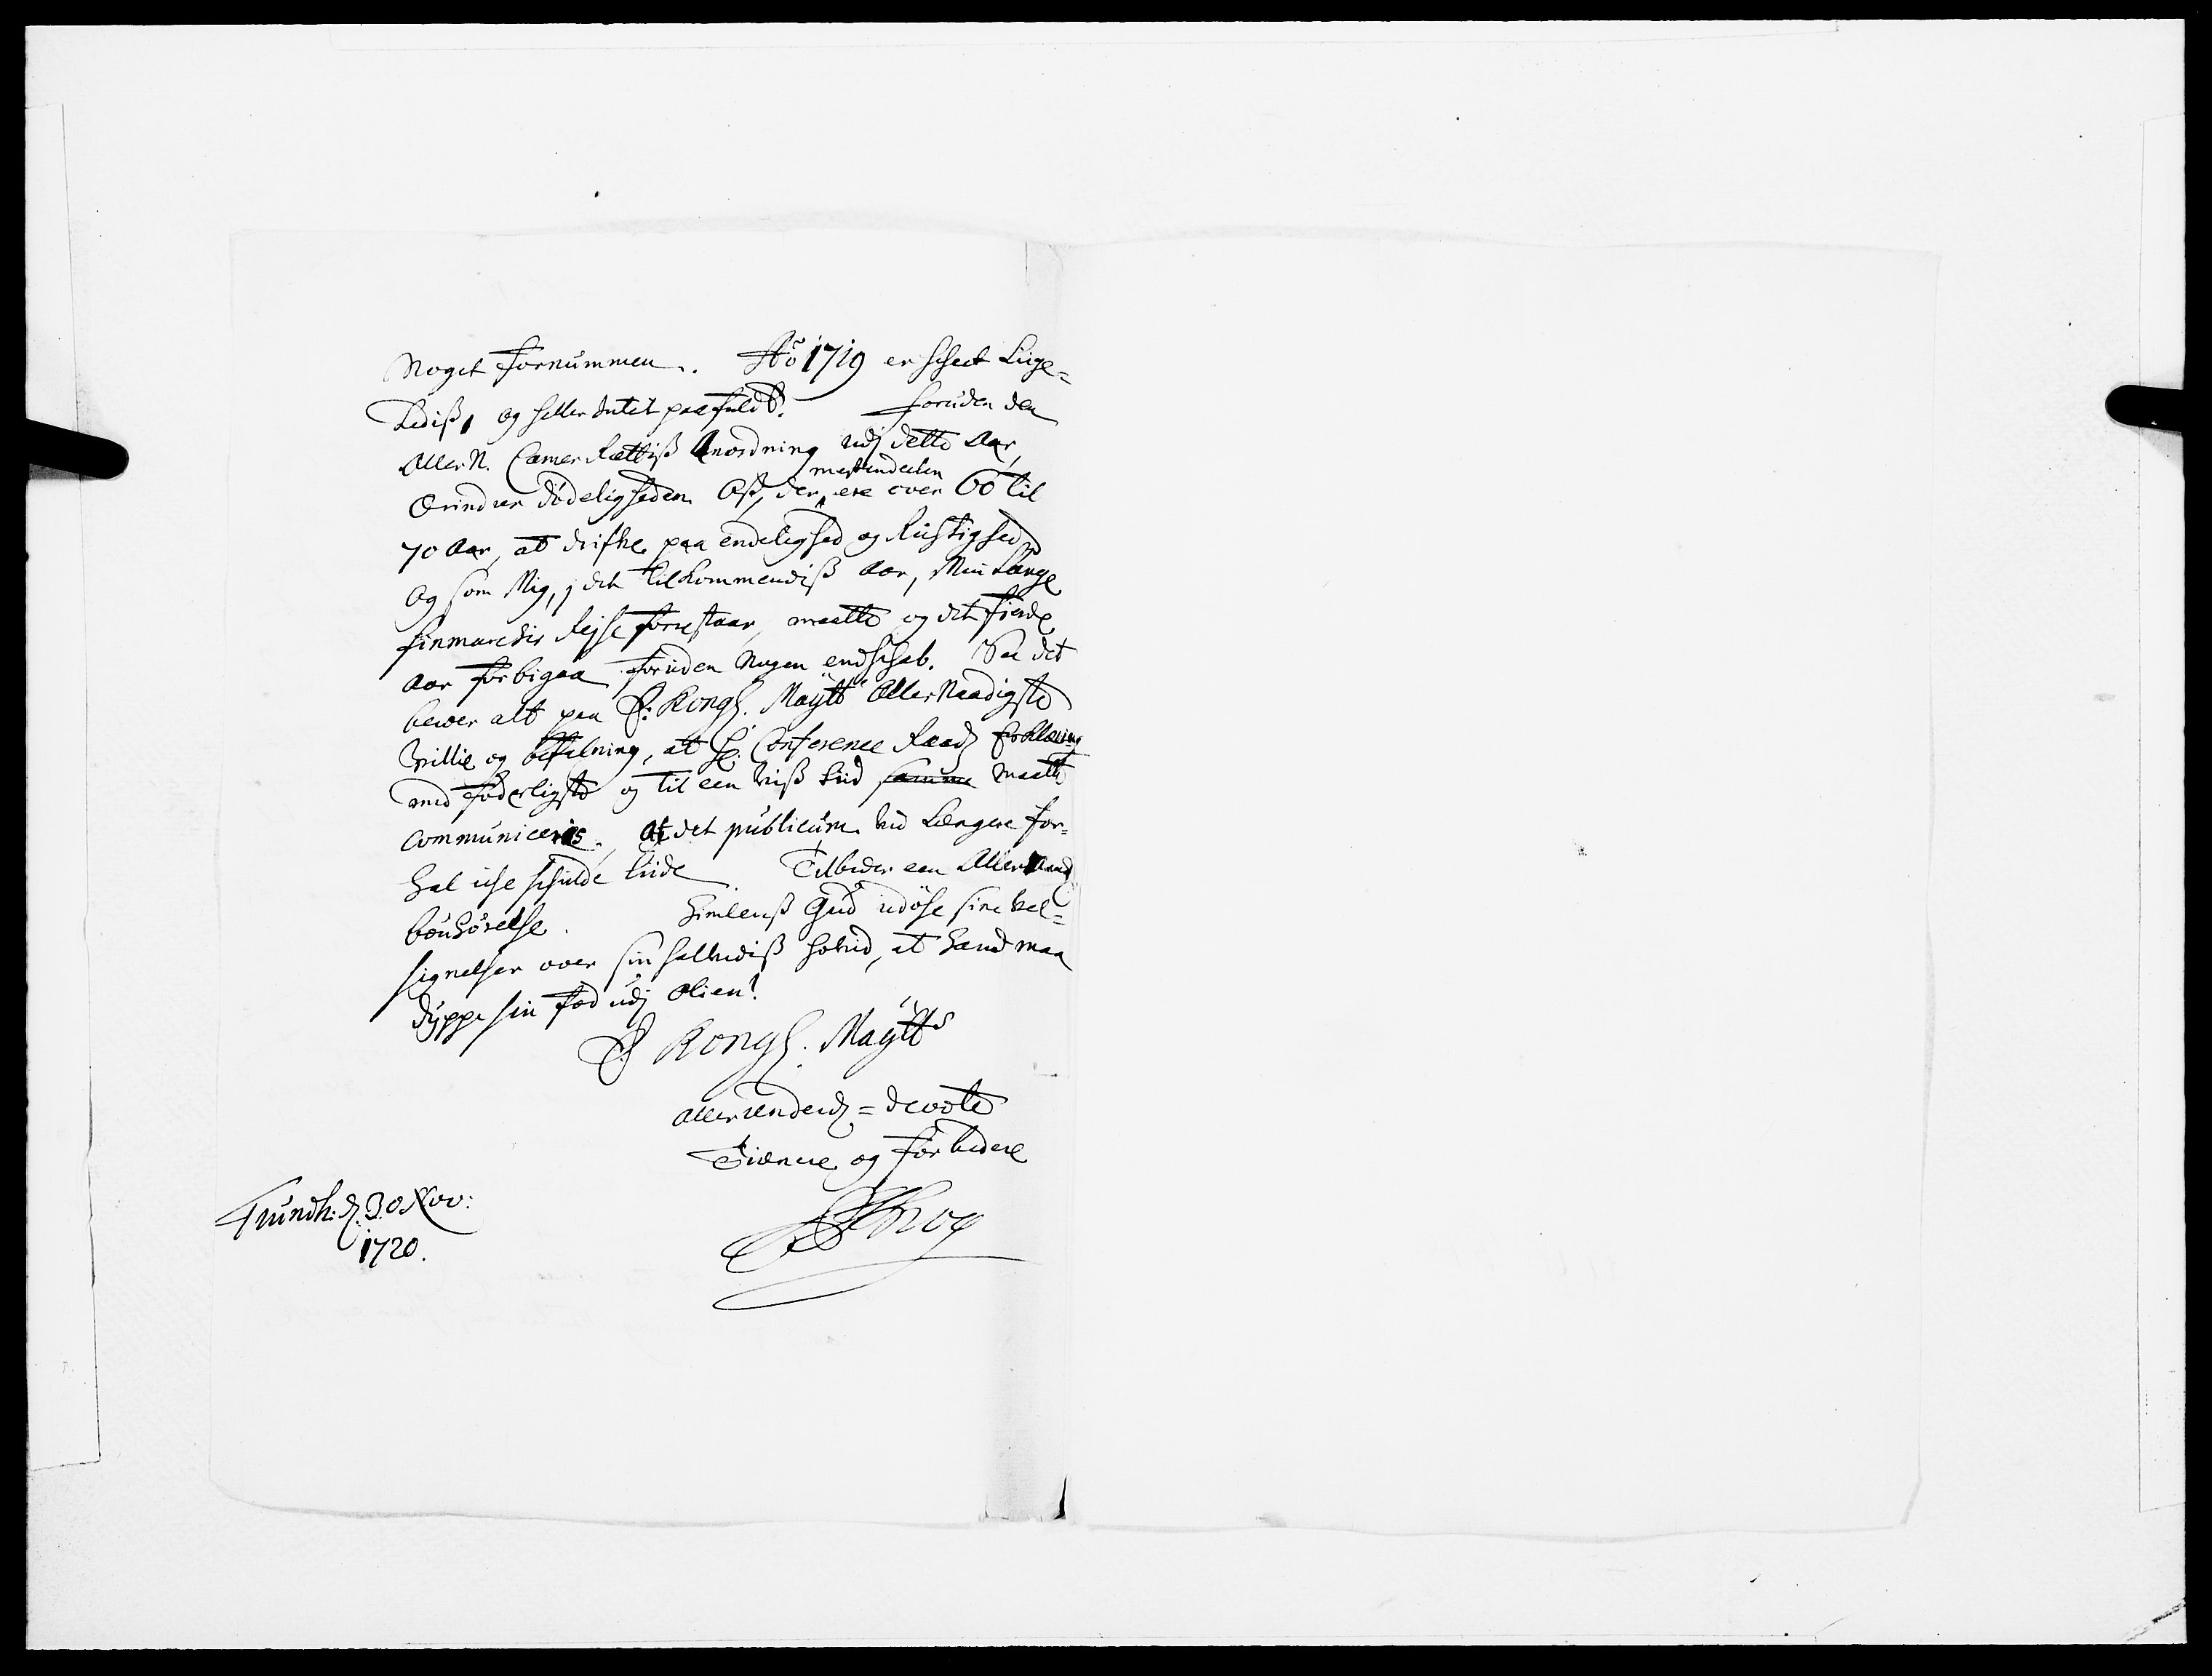 Noget fornummen. Aō 1719 er skeet Liige-
Lediß, og heller Intet paafuldt. foruden den
AllerN. CamerRættiß Anordning udj dette Aar,
Erindrer Dødeligheden Oß, der mestendeelen ere over 60 til
70 Aar, at drifve paa endelighed og Rustighed
Og som Mig, j det tilkommendiß Aar, Min Lange
finmarckis Rejse forestaar, maatte og det fierde
Aar forbigaa foruden Nogen endskab. Saa det
beroer alt paa E: Kongl. Maÿtts AllerNaadigste
Villie og befalning, at H. Conference Raadz Erklæring
med foderligste og til een viß tiid samme maatte
communiceris, At det publicum ved Længere for-
hal iche schulde liide. Tilbeder een AllerNaad
bønhørelse. Himlenß Gud udøse sine vel-
signelser over sin salvediß hoved, at Hand maa
dÿppe sin fod udj Olien!
E Kongl. Maÿtts
allerunderd= devote
Tienere og forbedere
Trundh: d. 30 Nov:
1720.
Krog